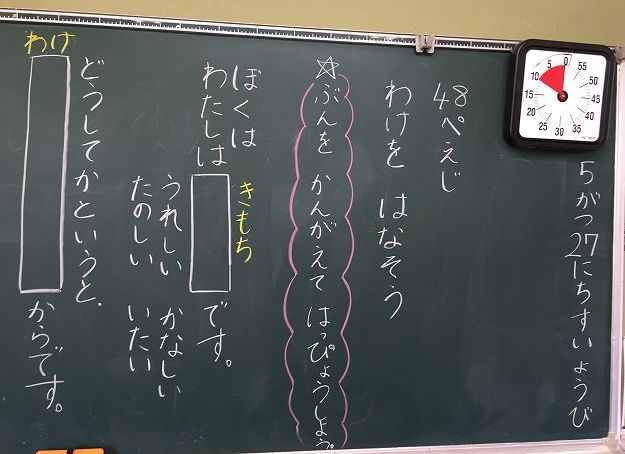 5がつ27にちすいようび
48ぺえじ
わけを はなそう
☆ぶんを かんがえて はっぴょうしよう。
ぼくは
わたしは
きもち
です。
うれしい かなしい
たのしい いたい
どうしてかというと、
わけ
からです。
0
55
50
45
40
35
30
25
20
15
10
5